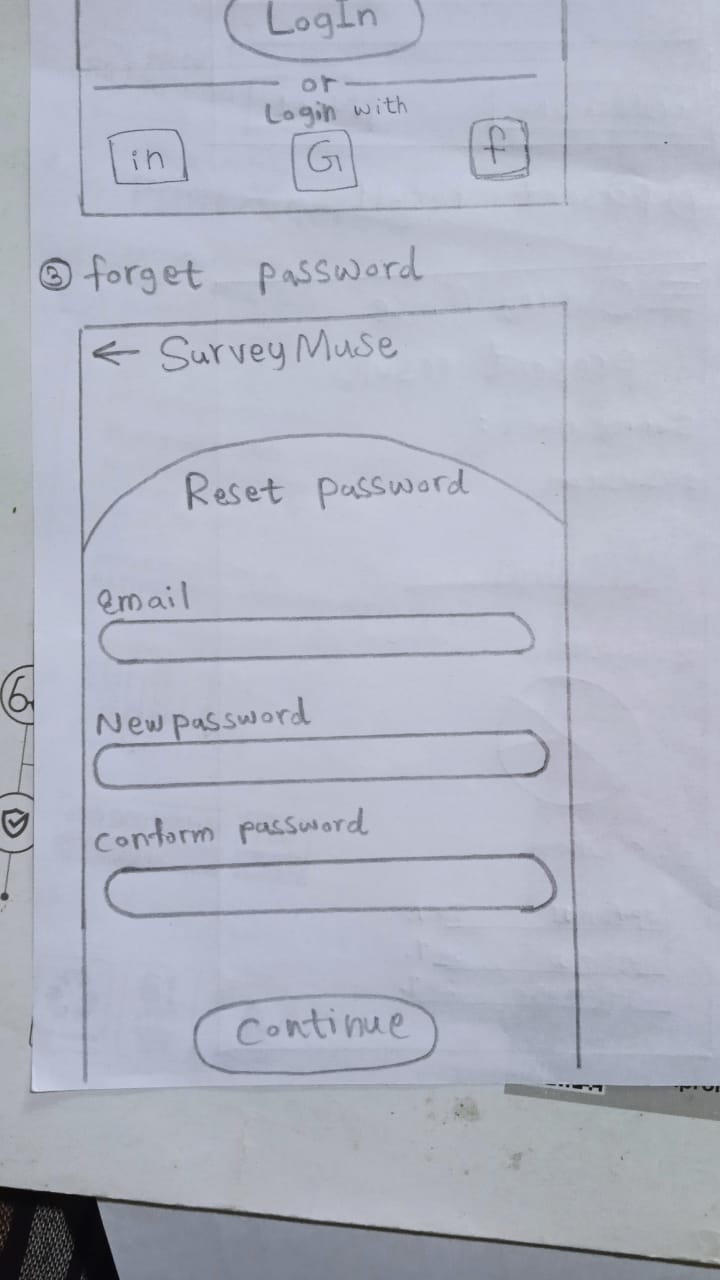 LogIn
or
Login with
in G f
③ forget password
← SurveyMuse
Reset password
email
New password
conform password
continue